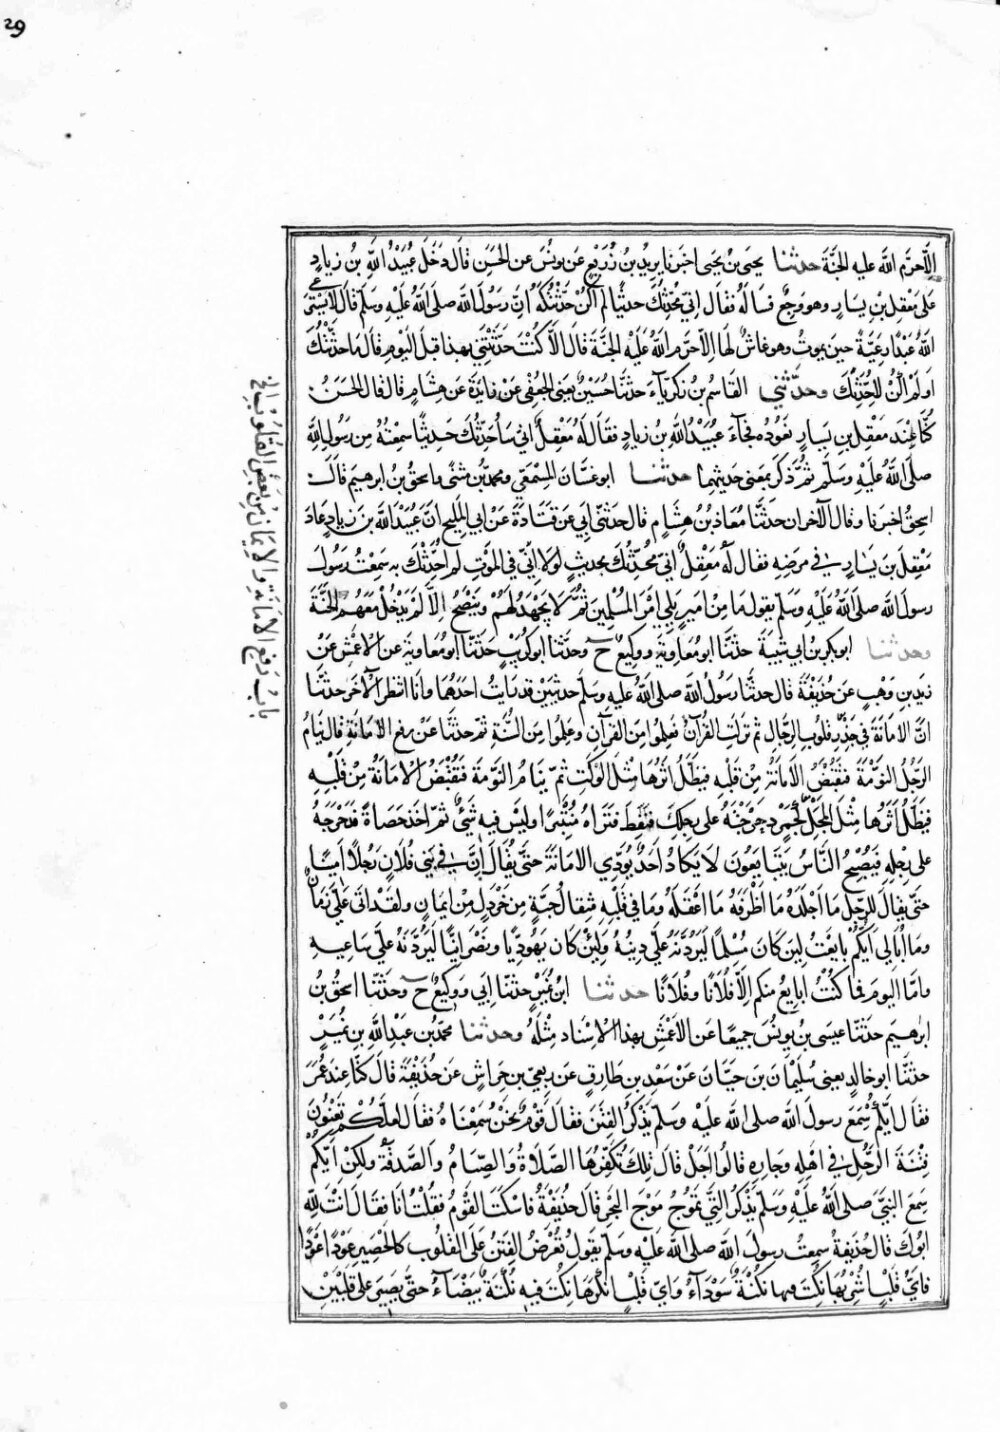 29
إلا حرم الله عليه الجنة حدثنا يحيى بن يحيى اخبرنا يزيد بن زريع عن يونس عن الحسن قال دخل عبيد الله بن زياد
على معقل بن يسار وهو وجع فساله فقال اني محدثك حديثا لم اكن حدثتكه ان رسول الله صلى الله عليه وسلم قال لا يسترعي
الله عبدا رعية حين يموت وهو غاش لها الا حرم الله عليه الجنة قال الا كنت حدثتني بهذا قبل اليوم قال ما حدثتك
او لم اكن لاحدثك وحدثني القاسم بن زكرياء حدثنا حسين يعني الجعفي عن زايدة عن هشام قال قال الحسن
كنا عند معقل بن يسار نعوده فجاء عبيد الله بن زياد فقال له معقل اني ساحدثك حديثا سمعته من رسول الله
صلى الله عليه وسلم ثم ذكر بمعنى حديثهما حدثنا ابو غسان المسمعي ومحمد بن مثنى واسحق بن ابرهيم قال
اسحق اخبرنا وقال الآخران حدثنا معاذ بن هشام قال حدثني ابي عن قتادة عن ابي المليح ان عبيد الله بن زياد عاد
معقل بن يسار في مرضه فقال له معقل اني محدثك بحديث لولا اني في الموت لم احدثك به سمعت رسول
رسول الله صلى الله عليه وسلم يقول ما من امير يلي امر المسلمين ثم لا يجهد لهم وينصح الا لم يدخل معهم الجنة
وحدثنا ابو بكر بن ابي شيبة حدثنا ابو معاوية ووكيع ح وحدثنا ابو كريب حدثنا ابو معاوية عن الاعمش عن
زيد بن وهب عن حذيفة قال حدثنا رسول الله صلى الله عليه وسلم حديثين قد رايت احدهما وانا انتظر الآخر حدثنا
ان الامانة في جذر قلوب الرجال ثم نزلت القرآن فعلموا من القرآن وعلموا من السنة ثم حدثنا عن رفع الامانة قال ينام
الرجل النومة فتقبض الامانة من قلبه فيظل اثرها مثل الوكت ثم ينام النومة فتقبض الامانة من قلبه
فيظل اثرها مثل المجل كجمر دحرجته على رجلك فنفط فتراه منتبرا وليس فيه شيئ ثم اخذ حصاة فدحرجه
على رجله فيصبح الناس يتبايعون لا يكاد احد يؤدي الامانة حتى يقال ان في بني فلان رجلا امينا
حتى يقال للرجل ما اجلده ما اظرفه ما اعقله وما في قلبه مثقال حبة من خردل من ايمان ولقد اتى علي زمان
وما ابالي ايكم بايعت لين كان مسلما ليردنه علي دينه ولئن كان يهوديا ونصرانيا ليردنه علي ساعيه
واما اليوم فما كنت ابايع منكم الا فلانا وفلانا حدثنا ابن نمير حدثنا ابي ووكيع ح وحدثنا اسحق بن
ابرهيم حدثنا عيسى بن يونس جميعا عن الاعمش بهذا الاسناد مثله وحدثنا محمد بن عبد الله بن نمير
حدثنا ابو خالد يعني سليمان بن حيان عن سعد بن طارق عن ربعي بن حراش عن حذيفة قال كنا عند عمر
فقال ايكم سمع رسول الله صلى الله عليه وسلم يذكر الفتن فقال قوم نحن سمعناه فقال لعلكم تعنون
فتنة الرجل في اهله وجاره قالوا اجل قال تلك تكفرها الصلاة والصيام والصدقة ولكن ايكم
سمع النبي صلى الله عليه وسلم يذكر التي تموج موج البحر قال حذيفة فاسكت القوم فقلت انا فقال انت لله
ابوك قال حذيفة سمعت رسول الله صلى الله عليه وسلم يقول تعرض الفتن على القلوب كالحصير عودا عودا
فاي قلب اشربها نكت فيها نكتة سوداء واي قلب انكرها نكت فيه نكتة بيضاء حتى يصير على قلبين
باب رفع الامانة والايمان من بعض القلوب الخ